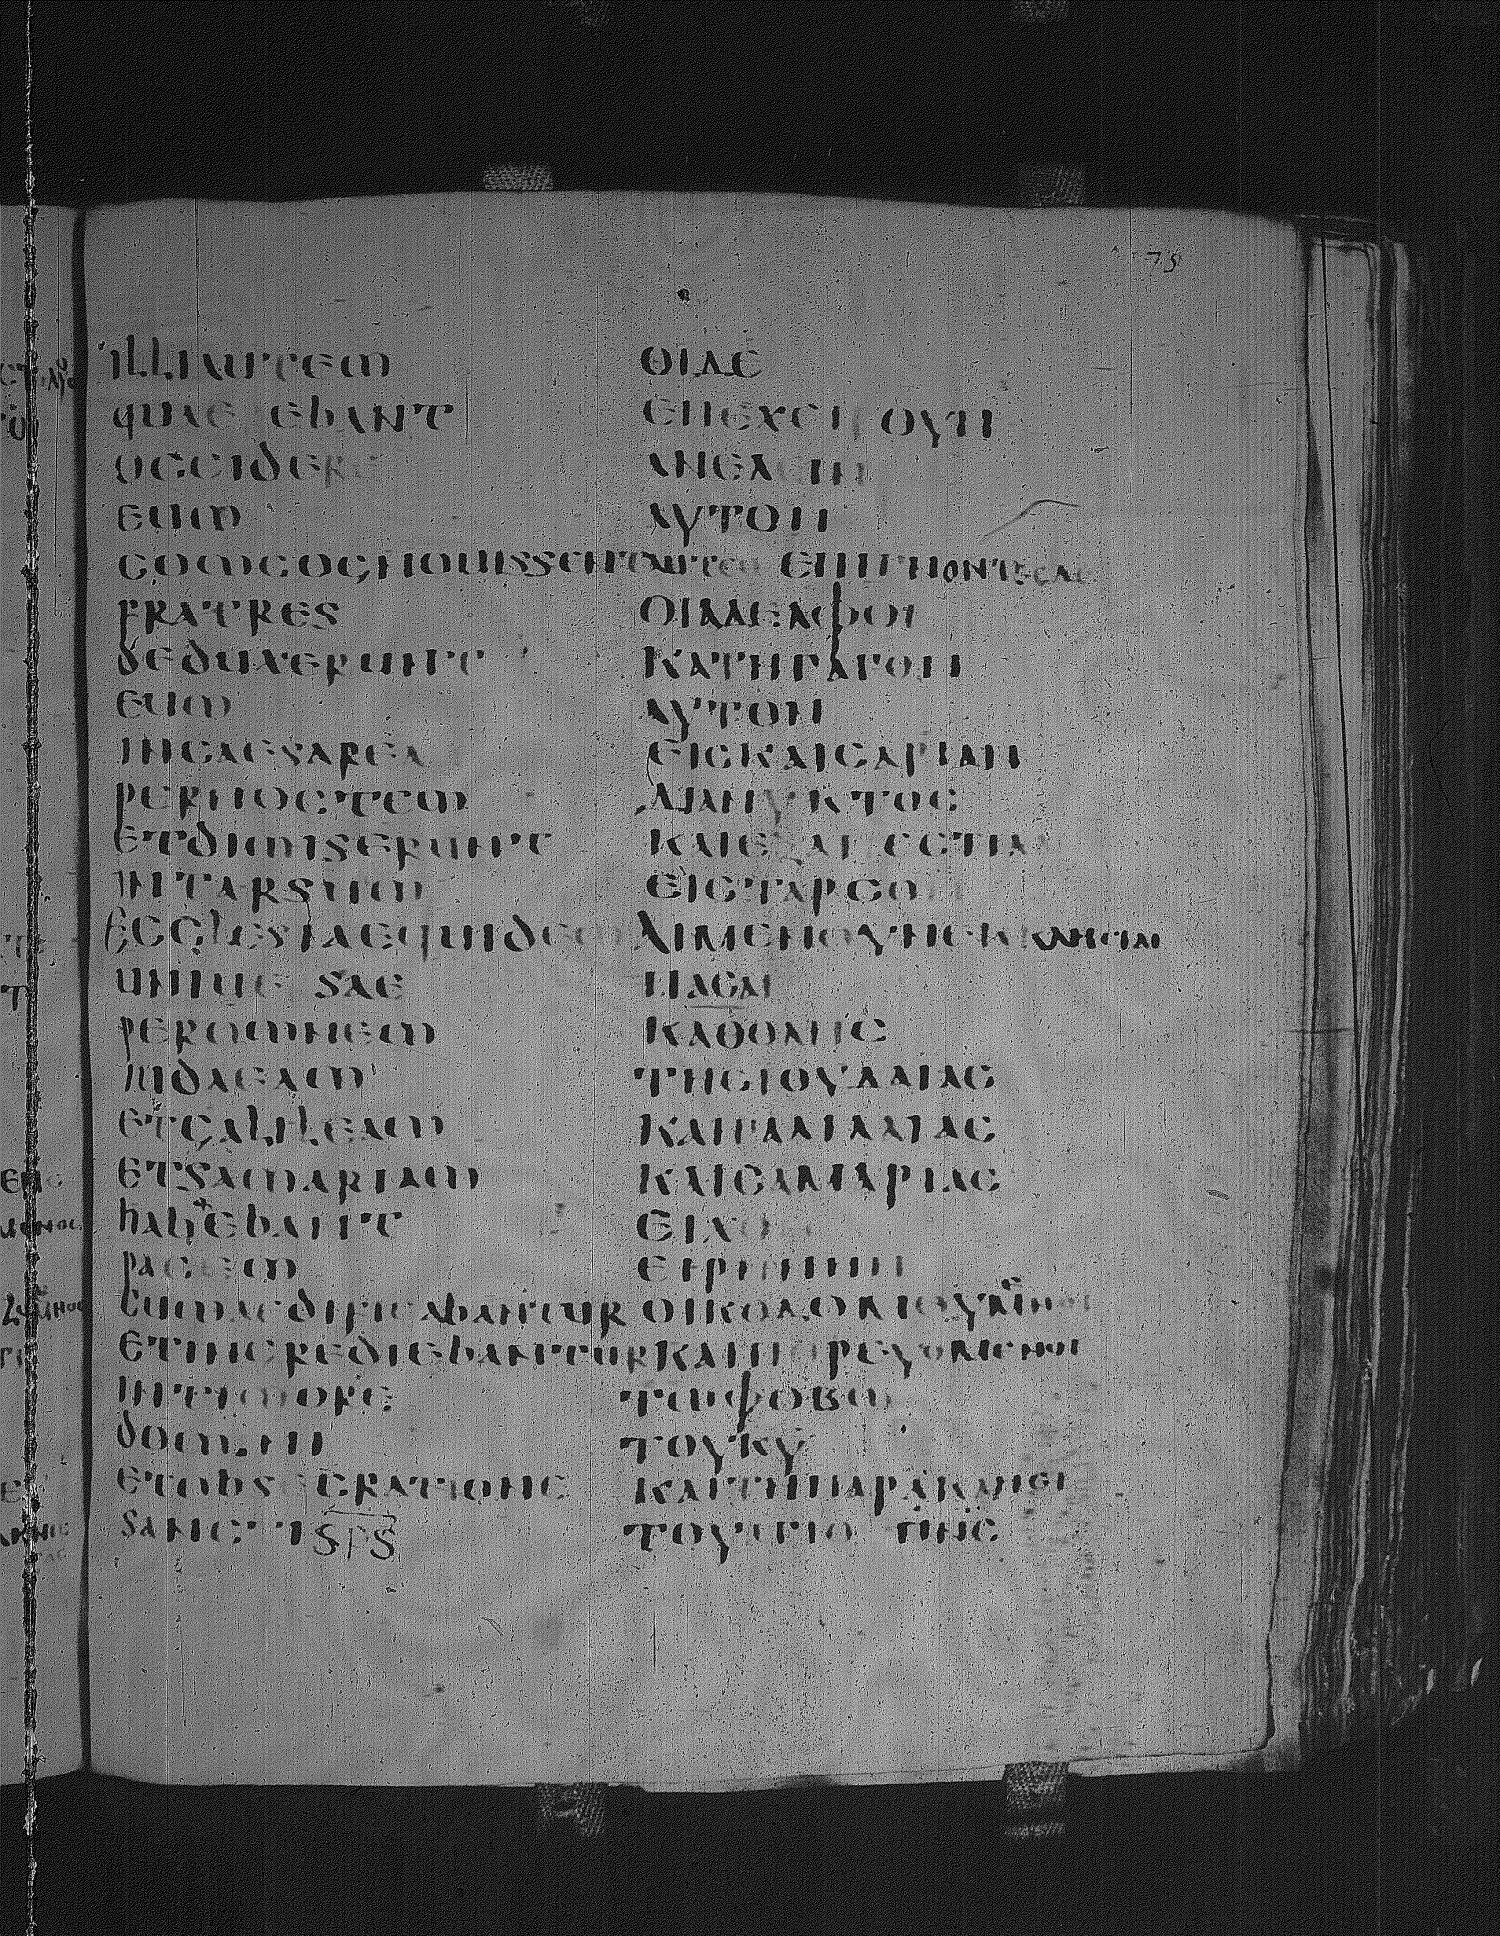 75
illiautem ΟΙΔΕ
quae ebant ΕΠΕΧΕΙΡΟΥΝ
occidere ΑΝΕΛΕΙΝ
eum ΑΥΤΟΝ
cumcognouissentautem ΕΠΙΓΝΟΝΤΕΣΔΕ
fratres ΟΙΑΔΕΛΦΟΙ
deduxerunt ΚΑΤΗΓΑΓΟΝ
eum ΑΥΤΟΝ
incaesarea ΕΙCΚΑΙCΑΡΙΑΝ
pernoctem ΔΙΑΝΥΚΤΟC
etdimiserunt
intarsum ΕΙCΤΑΡCΟ
ecclesiaequidem ΑΙΜΕΝΟΥΝΕΚΚΛΗCΙΑΙ
uniuersae ΠΑCΑΙ
peromnem ΚΑΘΟΛΗC
iudaeam ΤΗCΙΟΥΔΑΙΑC
etgalileam ΚΑΙΓΑΛΙΛΑΙΑC
etsamariam ΚΑΙCΑΜΑΡΙΑC
habebant ΕΙΧΟ
pacem ΕΙΡΗΝΗΝ
cumaedificabantur ΟΙΚΟΔΟΜΟΥΜΕΝΟΙ
etincrediebantur ΚΑΙΠΟΡΕΥΟΜΕΝΟΙ
intimore ΤΩΦΟΒΩ
domini ΤΟΥΚΥ
etobsecratione ΚΑΙΤΗΠΑΡΑΚΛΗCΙ
sanctisps ΤΟΥΑΓΙΟ ΠΝC